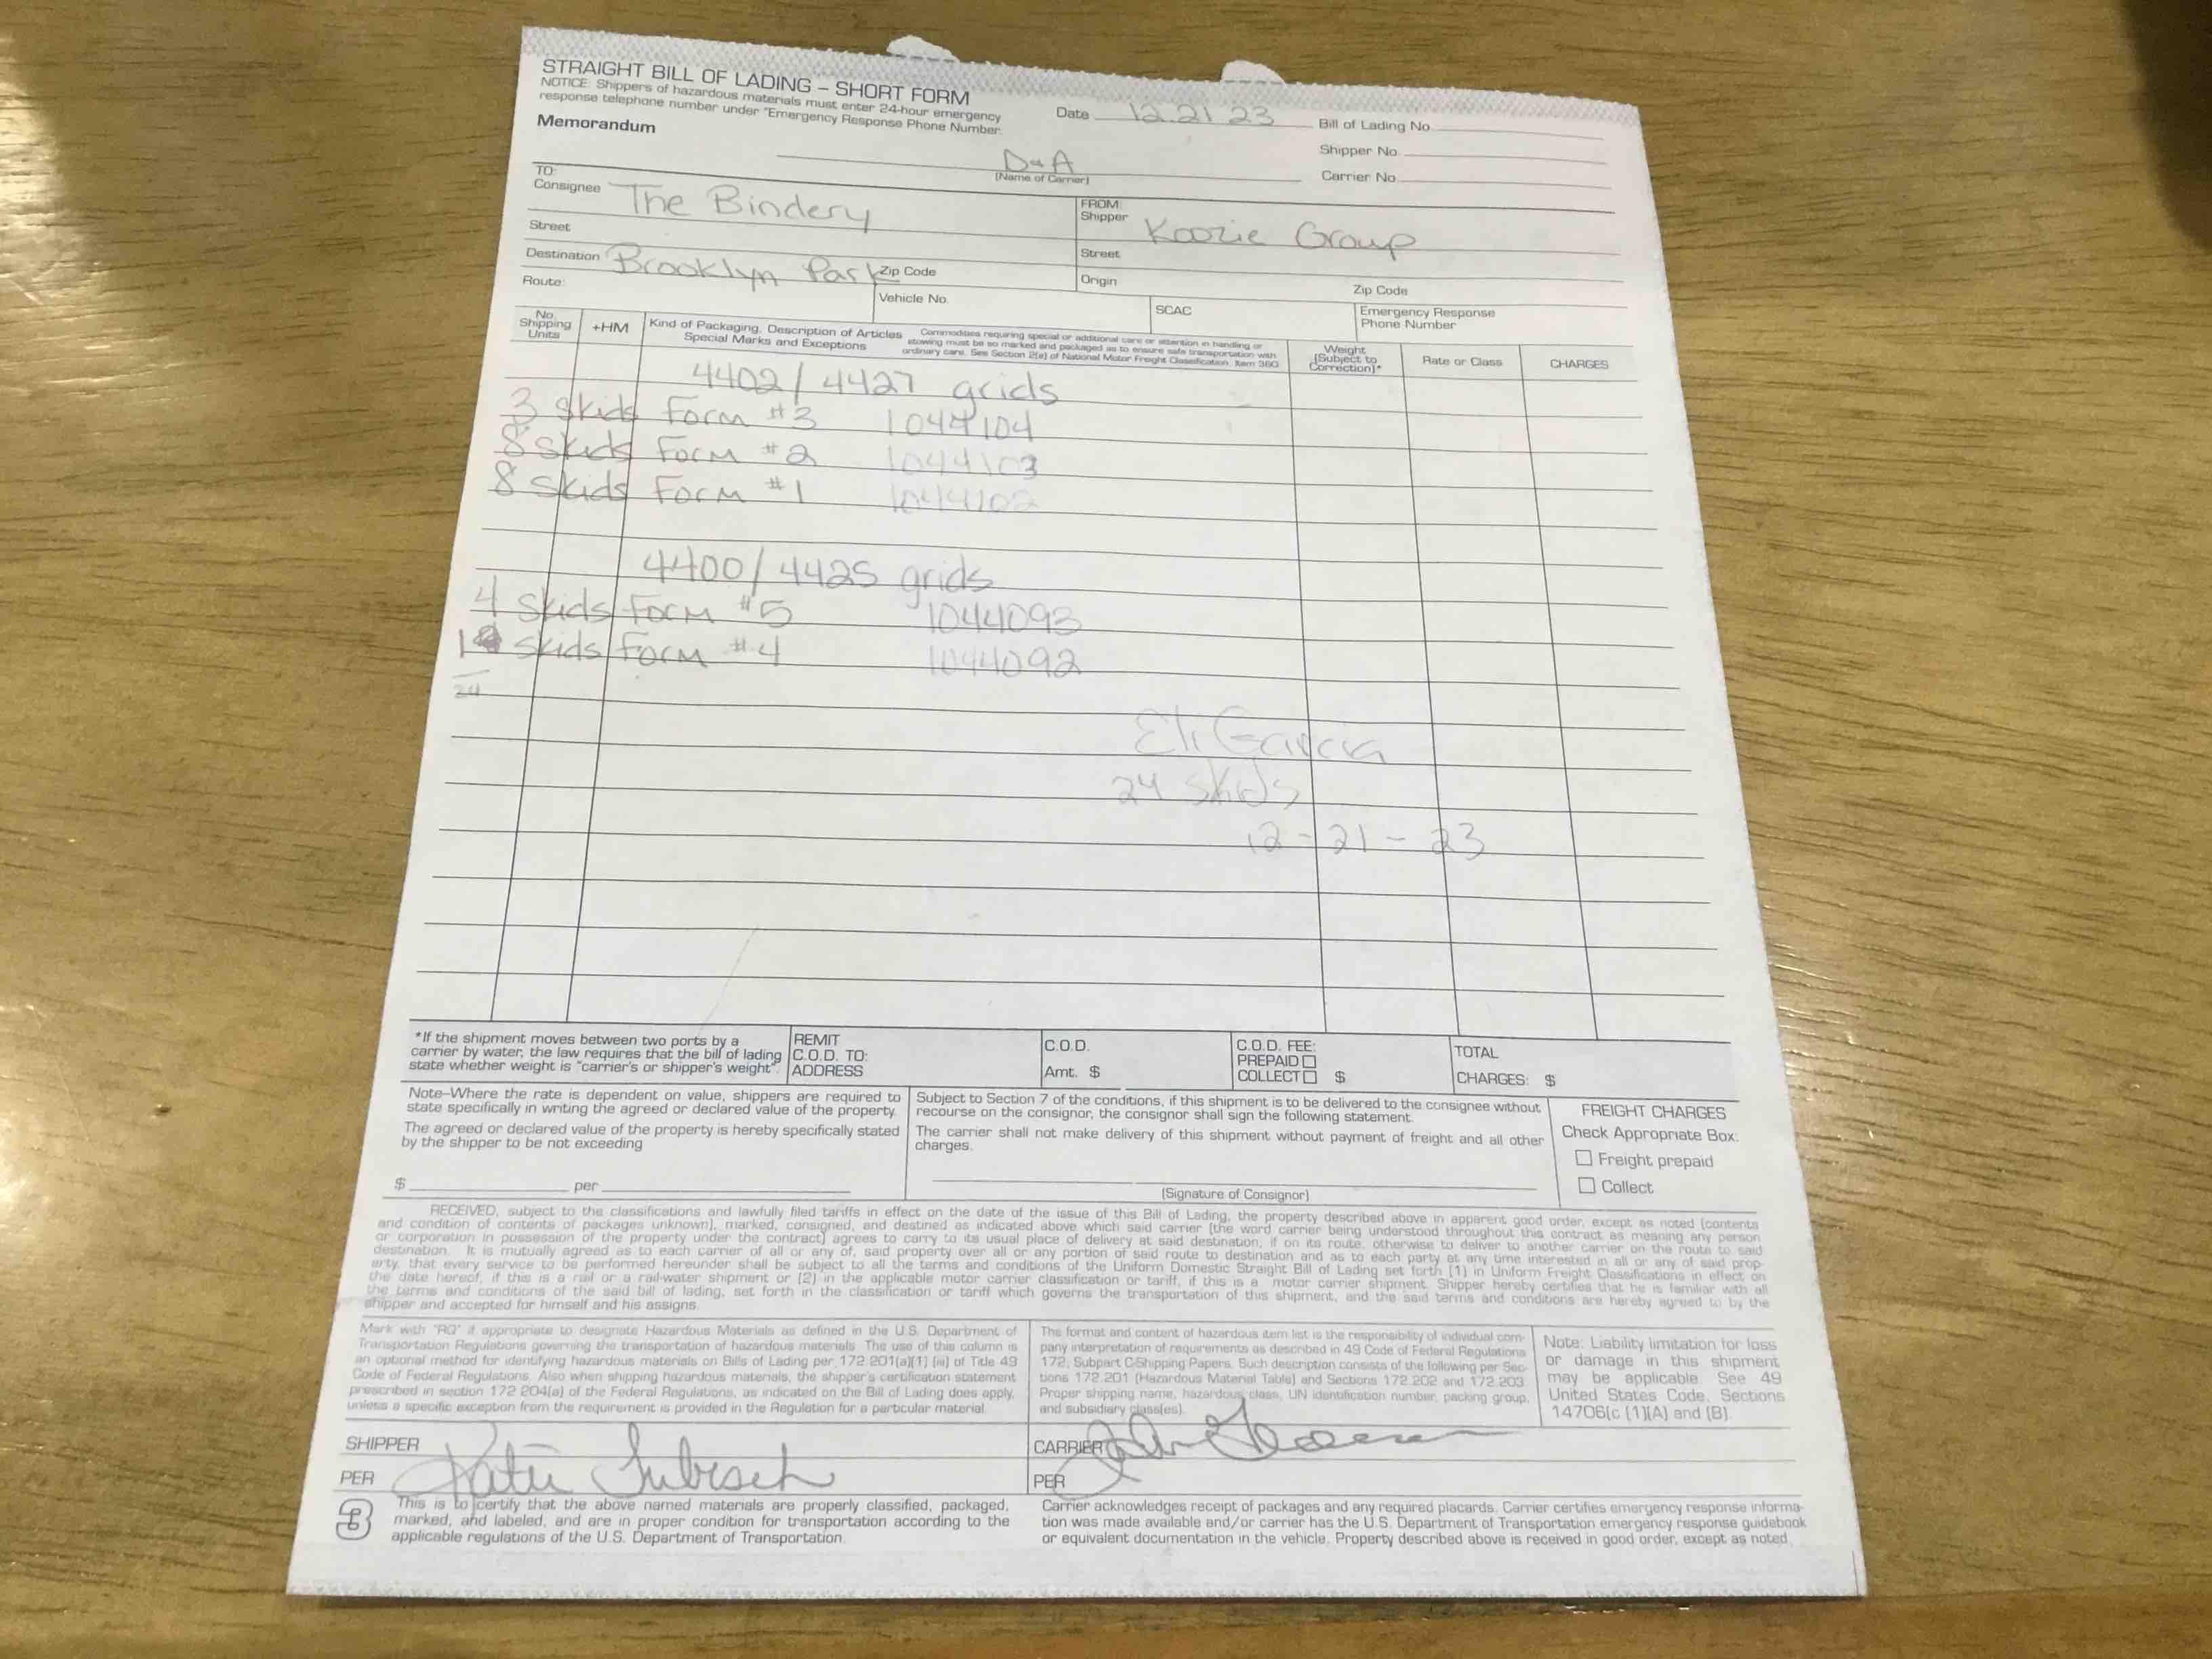 STRAIGHT BILL OF LADING – SHORT FORM
NOTICE: Shippers of hazardous materials must enter 24-hour emergency
response telephone number under "Emergency Response Phone Number.
Memorandum
Date 12.21.23
Bill of Lading No.
Shipper No.
Carrier No.
D&A
(Name of Carrier)
TO:
Consignee The Bindery
FROM:
Shipper Koozie Group
Street
Street
Destination Brooklyn Park Zip Code
Origin Zip Code
Route:
Vehicle No.
SCAC
Emergency Response
Phone Number
No.
Shipping
Units
+HM
Kind of Packaging, Description of Articles
Special Marks and Exceptions
Commodities requiring special or additional care or attention in handling or
stowing must be so marked and packaged as to ensure safe transportation with
ordinary care. See Section 2(e) of National Motor Freight Classification. Item 360
Weight
(Subject to
Correction)*
Rate or Class
CHARGES
4402/4427 grids
3 skids Form #3 1044104
8 skids Form #2 1044103
8 skids Form #1 1044102
4400/4425 grids
4 skids Form #5 1044093
1 skids Form #4 1044092
24
Eli Garcia
24 skids
12-21-23
*If the shipment moves between two ports by a
carrier by water, the law requires that the bill of lading
state whether weight is "carrier's or shipper's weight".
REMIT
C.O.D. TO:
ADDRESS
C.O.D.
Amt. $
C.O.D. FEE:
PREPAID
COLLECT $
TOTAL
CHARGES: $
Note–Where the rate is dependent on value, shippers are required to
state specifically in writing the agreed or declared value of the property.
The agreed or declared value of the property is hereby specifically stated
by the shipper to be not exceeding
$ per
Subject to Section 7 of the conditions, if this shipment is to be delivered to the consignee without
recourse on the consignor, the consignor shall sign the following statement.
The carrier shall not make delivery of this shipment without payment of freight and all other
charges.
(Signature of Consignor)
FREIGHT CHARGES
Check Appropriate Box:
Freight prepaid
Collect
RECEIVED, subject to the classifications and lawfully filed tariffs in effect on the date of the issue of this Bill of Lading, the property described above in apparent good order, except as noted (contents
and condition of contents of packages unknown), marked, consigned, and destined as indicated above which said carrier (the word carrier being understood throughout this contract as meaning any person
or corporation in possession of the property under the contract) agrees to carry to its usual place of delivery at said destination, if on its route, otherwise to deliver to another carrier on the route to said
destination. It is mutually agreed as to each carrier of all or any of, said property over all or any portion of said route to destination and as to each party at any time interested in all or any of said prop-
erty, that every service to be performed hereunder shall be subject to all the terms and conditions of the Uniform Domestic Straight Bill of Lading set forth (1) in Uniform Freight Classifications in effect on
the date hereof, if this is a rail or a rail-water shipment or (2) in the applicable motor carrier classification or tariff, if this is a motor carrier shipment. Shipper hereby certifies that he is familiar with all
the terms and conditions of the said bill of lading, set forth in the classification or tariff which governs the transportation of this shipment, and the said terms and conditions are hereby agreed to by the
shipper and accepted for himself and his assigns.
Mark with "RQ" if appropriate to designate Hazardous Materials as defined in the U.S. Department of
Transportation Regulations governing the transportation of hazardous materials. The use of this column is
an optional method for identifying hazardous materials on Bills of Lading per 172.201(a)(1) (iii) of Title 49
Code of Federal Regulations. Also when shipping hazardous materials, the shipper's certification statement
prescribed in section 172.204(a) of the Federal Regulations, as indicated on the Bill of Lading does apply,
unless a specific exception from the requirement is provided in the Regulation for a particular material.
The format and content of hazardous item list is the responsibility of individual com-
pany interpretation of requirements as described in 49 Code of Federal Regulations
172, Subpart C-Shipping Papers. Such description consists of the following per Sec-
tions 172.201 (Hazardous Material Table) and Sections 172.202 and 172.203.
Proper shipping name, hazardous class, UN identification number, packing group,
and subsidiary class(es).
Note: Liability limitation for loss
or damage in this shipment
may be applicable. See 49
United States Code, Sections
14706(c (1)(A) and (B).
SHIPPER
PER Katie
CARRIER
PER
3
This is to certify that the above named materials are properly classified, packaged,
marked, and labeled, and are in proper condition for transportation according to the
applicable regulations of the U.S. Department of Transportation.
Carrier acknowledges receipt of packages and any required placards. Carrier certifies emergency response informa-
tion was made available and/or carrier has the U.S. Department of Transportation emergency response guidebook
or equivalent documentation in the vehicle. Property described above is received in good order, except as noted.